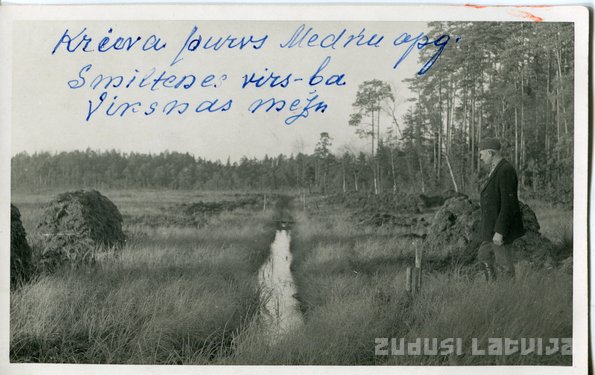 Krēova purvs Medņu apg.
Smiltenes virs-ba
Viksnas mežn
zudusi Latvija